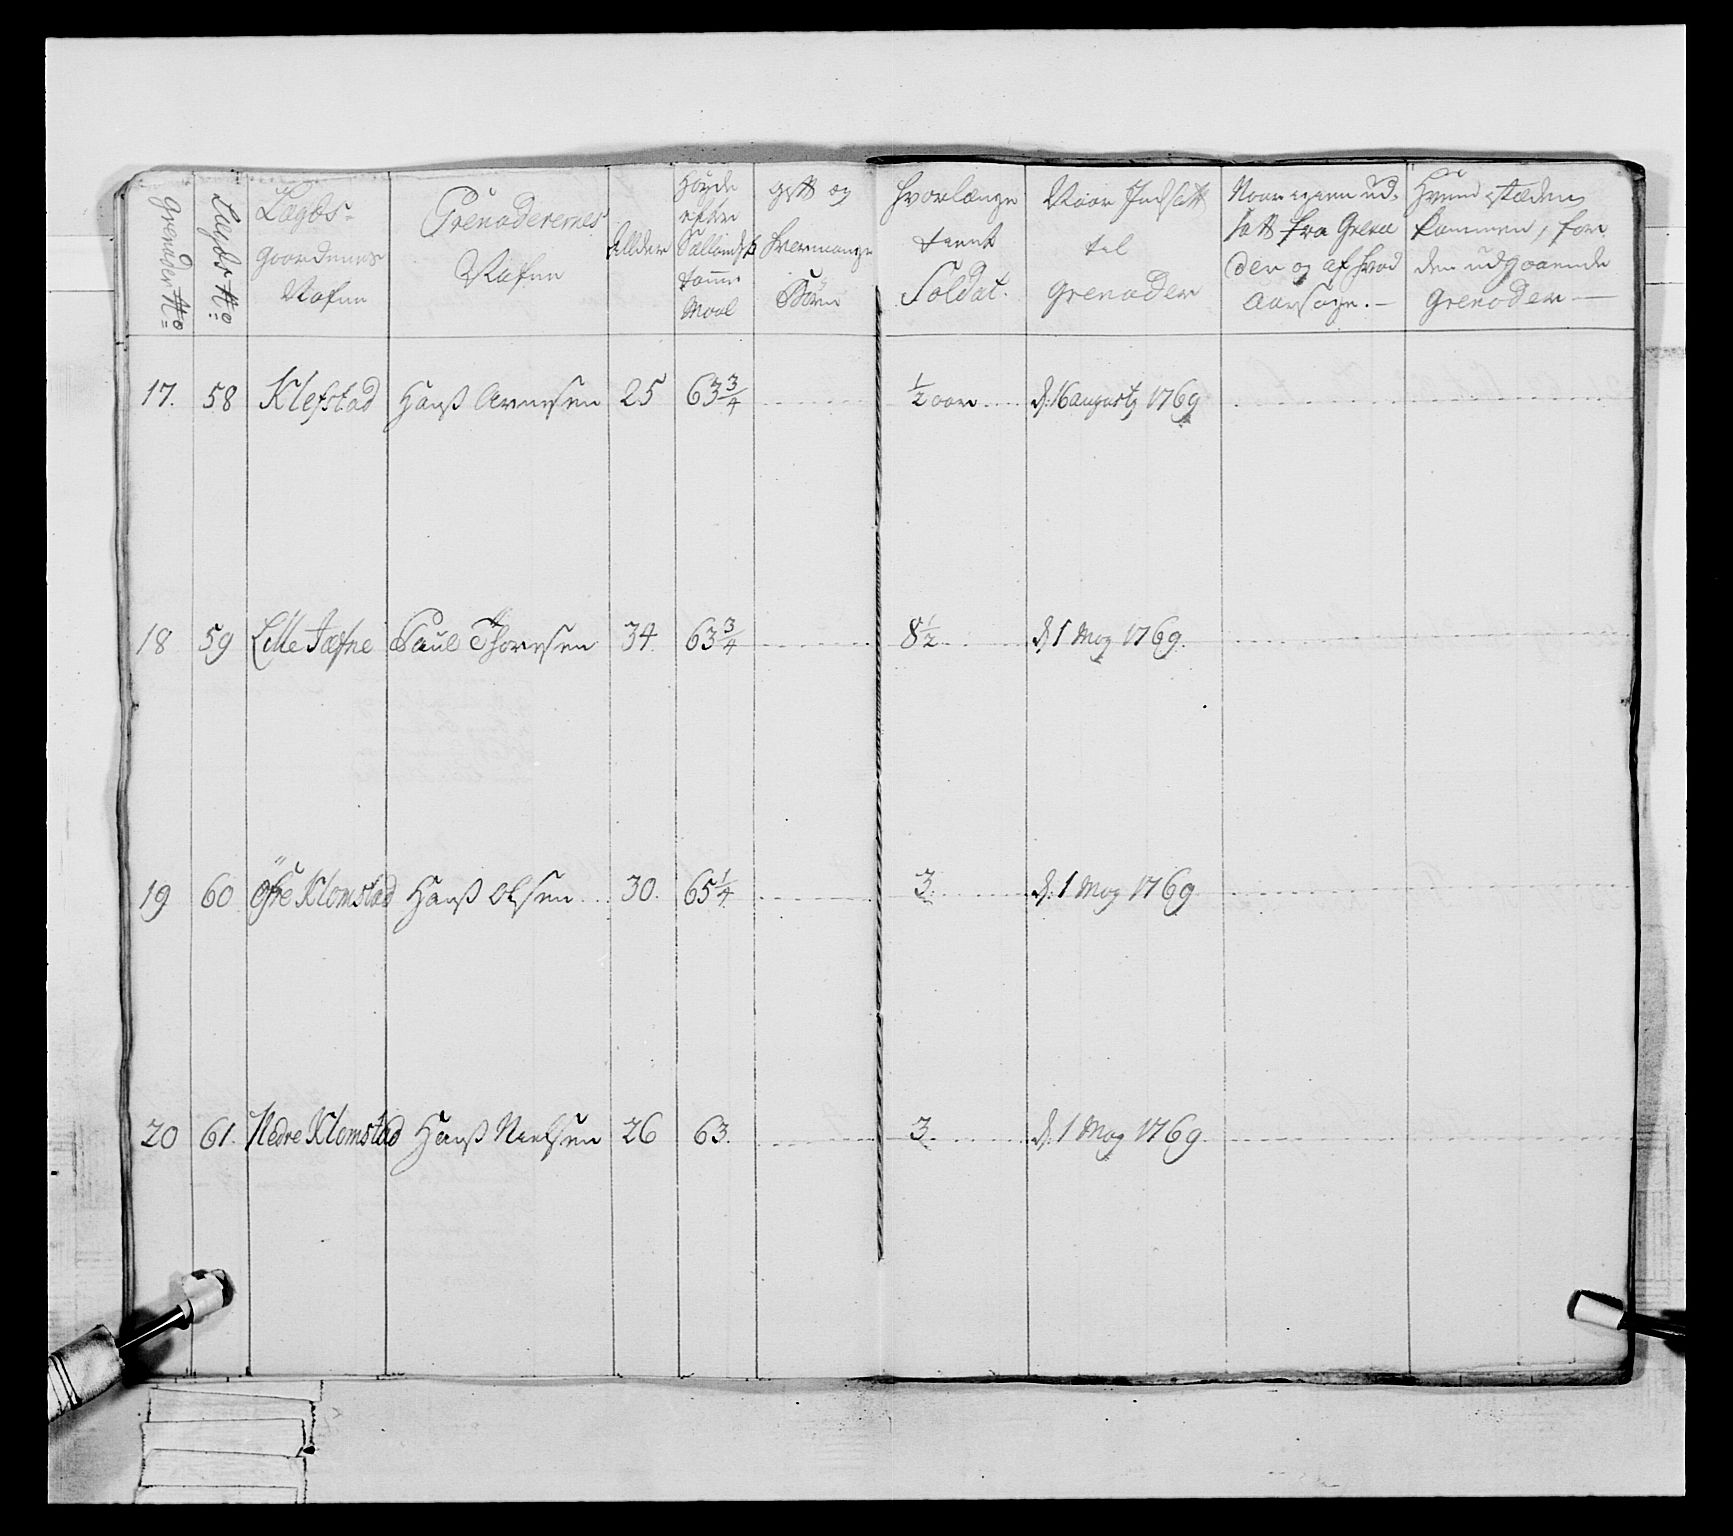 Grenader No
Lægds No
Lægds-
Gaardenes
Nafne
Grenaderernes
Nafne
Allder
Høyde
efter
Sællandsk
Tomme
Maal
Gift og
hvormange
Børn
Hvorlænge
tient
Soldat.
Naar Indsatt
til
Grenader
Naar igien ud-
satt fra Grena
der og af hvad
Aarsage. —
Hvem i stæden
kommen, for
den udgaaende
Grenader —
17. 58 Klefstad Hans Arnesen 25 63 3/4 1/2 aar d: 16 augusty 1769
18 59 Lille Jæfne Paul Thoresen 34 63 3/4 8 1/2 d: 1 May 1769.
19 60 Öfre Klomstad Hans Olsen 30. 65 1/4 3. d: 1 May 1769
20 61. Nedre Klomstad Hans Nielsen 26 63. 3. d: 1 May 1769